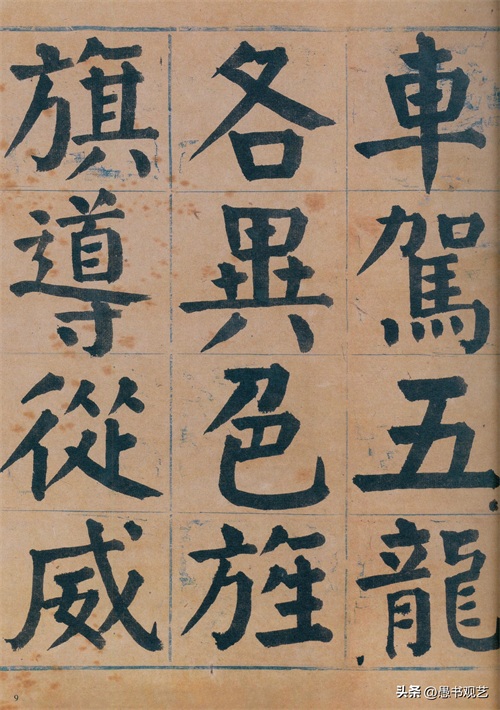 車駕五龍
各異色旌
旗導從威
9
头条 @愚书观艺